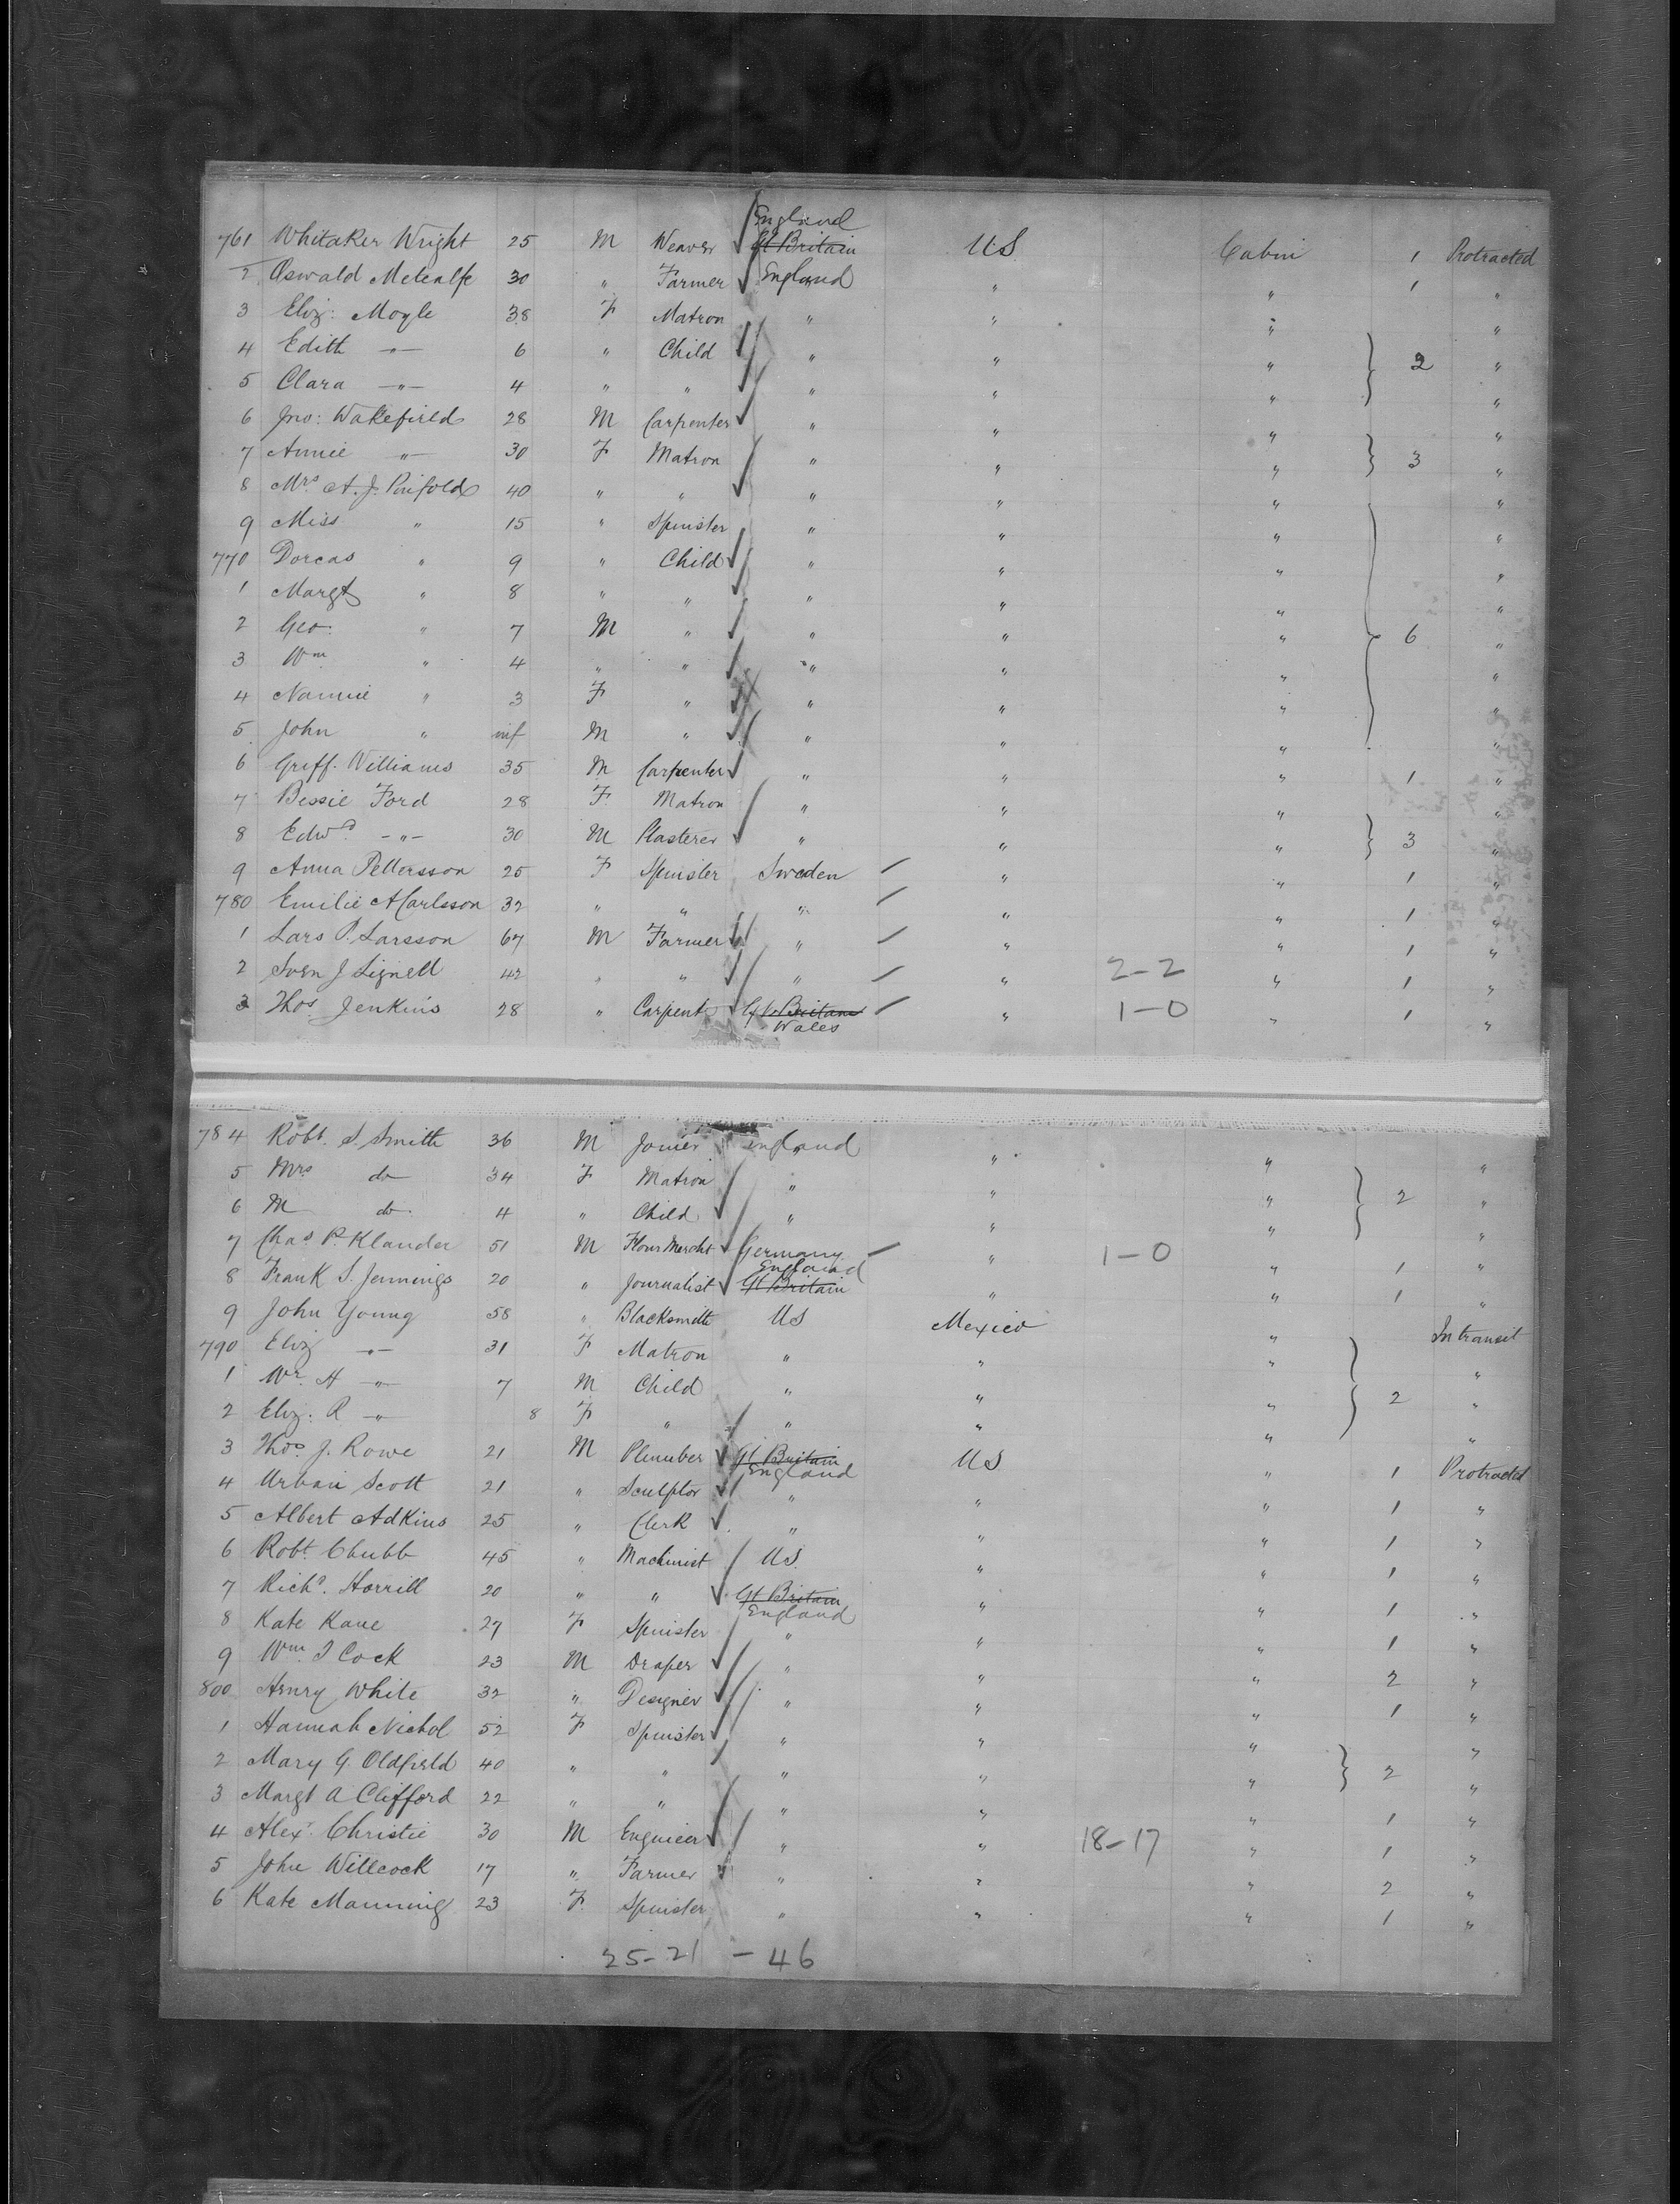 England
761 Whitaker Wright 25 M Weaver Gt Britain US Cabin 1 Protracted
2 Oswald Metcalfe 30 " Farmer England " " 1 "
3 Eliz: Moyle 38 F Matron " " " "
4 Edith —"— 6 " Child " " " 2 "
5 Clara —"— 4 " " " " " "
6 Jno: Wakefield 28 M Carpenter " " " "
7 Annie —"— 30 F Matron " " " 3 "
8 Mrs A. J. Pinfold 40 " " " " " "
9 Miss " 15 " Spinster " " " "
770 Dorcas " 9 " Child " " " "
1 Margt " 8 " " " " " "
2 Geo: " 7 M " " " " 6 "
3 Wm " 4 " " " " " "
4 Nannie " 3 F " " " " "
5 John " inf M " " " " "
6 Griff. Williams 35 M Carpenter " " " 1 "
7 Bessie Ford 28 F Matron " " " "
8 Edwd —"— 30 M Plasterer " " " 3 "
9 Anna Pettersson 25 F Spinster Sweden " " 1 "
780 Emilie A Carlsson 32 " " " " " 1 "
1 Lars P. Larsson 67 M Farmer " " " 1 "
2 Sven J Lignell 42 " " " " 2-2 " 1 "
3 Thos Jenkins 28 " Carpent Gt Britain " 1-0 " 1 "
Wales
784 Robt. S. Smith 36 M Joiner England " " "
5 Mrs do 34 F Matron " " " 2 "
6 M do 4 " Child " " " "
7 Chas P. Klander 51 M Flour Mercht Germany " 1-0 " 1 "
England
8 Frank S. Jennings 20 " Journalist Gt Britain " " 1 "
9 John Young 58 " Blacksmith US Mexico " In transit
790 Eliz —"— 31 F Matron " " " "
1 Wm H —"— 7 M Child " " " 2 "
2 Eliz: R —"— 8 F " " " " "
3 Thos J. Rowe 21 M Plumber Gt Britain US " 1 Protracted
England
4 Urban Scott 21 " Sculptor " " " 1 "
5 Albert Adkins 25 " Clerk " " " 1 "
6 Robt. Chubb 45 " Machinist US " " 1 "
7 Richd. Horrill 20 " " Gt Britain " " 1 "
England
8 Kate Kane 27 F Spinster " " " 1 "
9 Wm J Cock 23 M Draper " " " 2 "
800 Henry White 32 " Designer " " " 1 "
1 Hannah Nichol 52 F Spinster " " " "
2 Mary G. Oldfield 40 " " " " " 2 "
3 Margt A Clifford 22 " " " " " 1 "
4 Alexr. Christie 30 M Engineer " " 18-17 " 1 "
5 John Willcock 17 " Farmer " " " 2 "
6 Kate Manning 23 F Spinster " " " 1 "
25-21 - 46